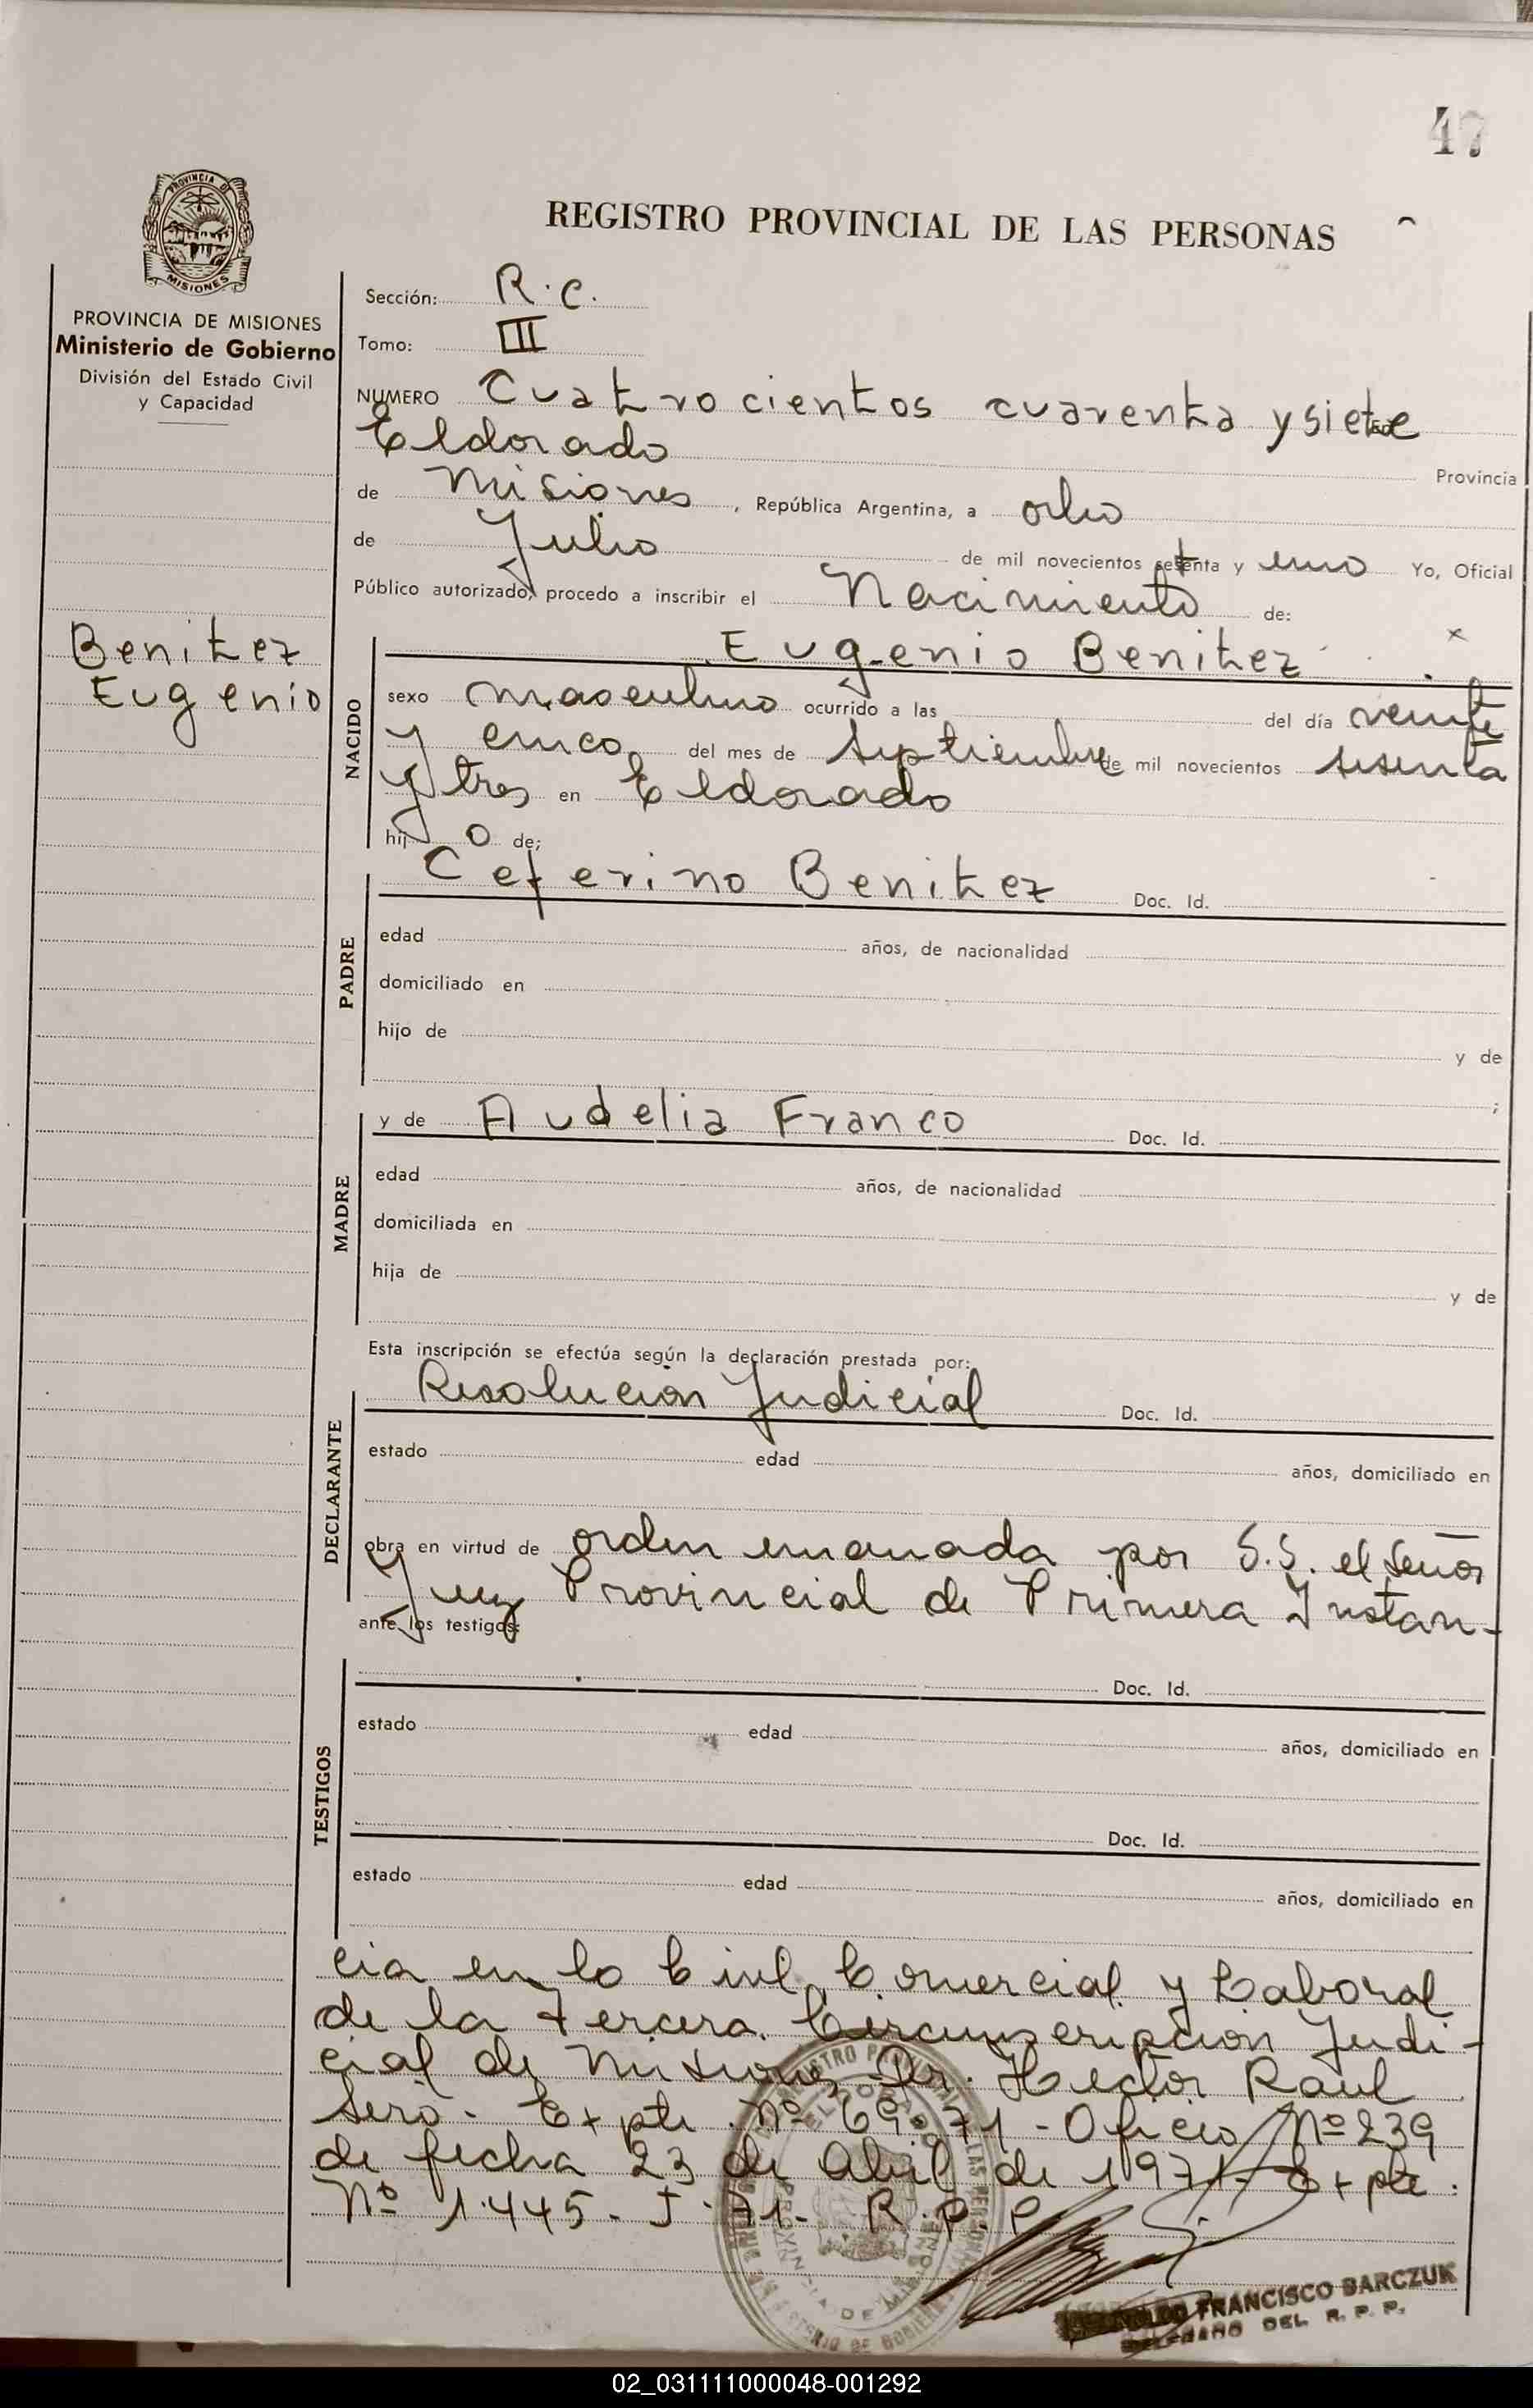 47
PROVINCIA DE
MISIONES
REGISTRO PROVINCIAL DE LAS PERSONAS
PROVINCIA DE MISIONES
Ministerio de Gobierno
División del Estado Civil
y Capacidad
Sección: R. C.
Tomo: III
NUMERO Cuatrocientos cuarenta y siete
Eldorado Provincia
de Misiones, República Argentina, a ocho
de Julio de mil novecientos setenta y uno Yo, Oficial
Público autorizado, procedo a inscribir el Nacimiento de:
Benitez
Eugenio
NACIDO
Eugenio Benitez x
sexo masculino ocurrido a las del día veinte
y cinco del mes de Septiembre de mil novecientos sesenta
y tres en Eldorado
hij o de;
PADRE
Ceferino Benitez Doc. Id.
edad años, de nacionalidad
domiciliado en
hijo de y de
;
MADRE
y de Audelia Franco Doc. Id.
edad años, de nacionalidad
domiciliada en
hija de y de
Esta inscripción se efectúa según la declaración prestada por:
DECLARANTE
Resolución Judicial Doc. Id.
estado edad años, domiciliado en
obra en virtud de orden emanada por S.S. el Señor
Juez Provincial de Primera Instan-
ante los testigos:
TESTIGOS
Doc. Id.
estado edad años, domiciliado en
Doc. Id.
estado edad años, domiciliado en
cia en lo Civil, Comercial y Laboral
de la Tercera Circunscripción Judi-
cial de Misiones Dr. Hector Raul
Sero - Expte. Nº 69-71 - Oficio Nº 239
de fecha 23 de Abril de 1971 - Expte.
Nº 1.445 - J - 71 - R. P. P.
FRANCISCO BARCZUK
DEL R. P. P.
02_031111000048-001292